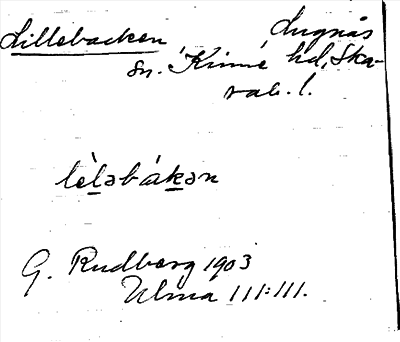 Lillebacken Lugnås
sn. Kinne hd, Ska-
rab. l.
lèl̠əbák̠ən
G. Rudberg 1903
Ulma 111:111.